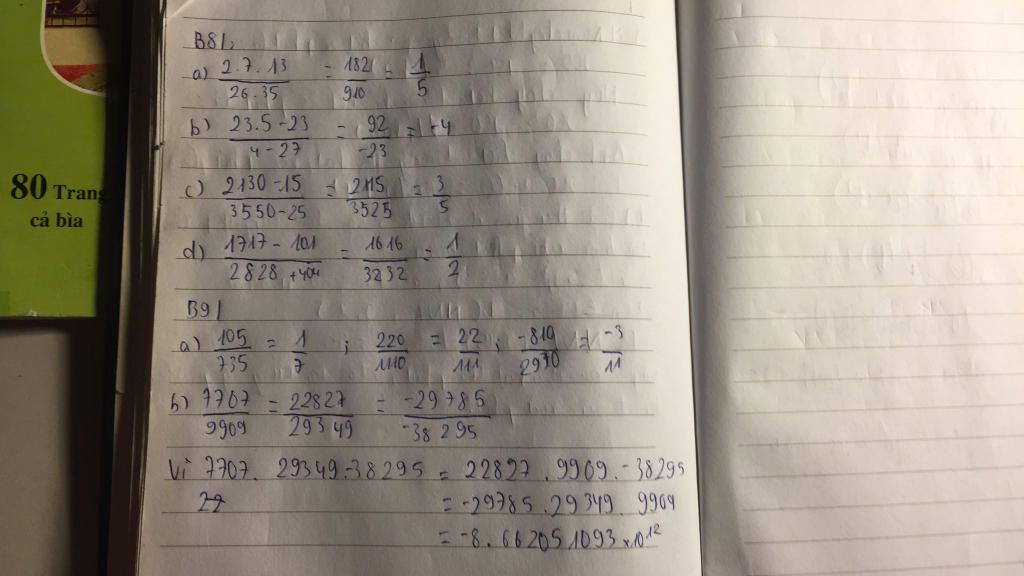 80 Trang
cả bìa
B8/
a) 2.7.13/26.35 = 182/910 = 1/5
b) 23.5-23/4-27 = 92/-23 = -4
c) 2130-15/3550-25 = 2115/3525 = 3/5
d) 1717-101/2828+404 = 1616/3232 = 1/2
B9/
a) 105/735 = 1/7 ; 220/1110 = 22/111 ; -810/2970 = -3/11
b) 7707/9909 = 22827/29349 = -29785/-38295
Vì 7707.29349.-38295 = 22827.9909.-38295
= -29785.29349.9909
= -8.662051093×10^12